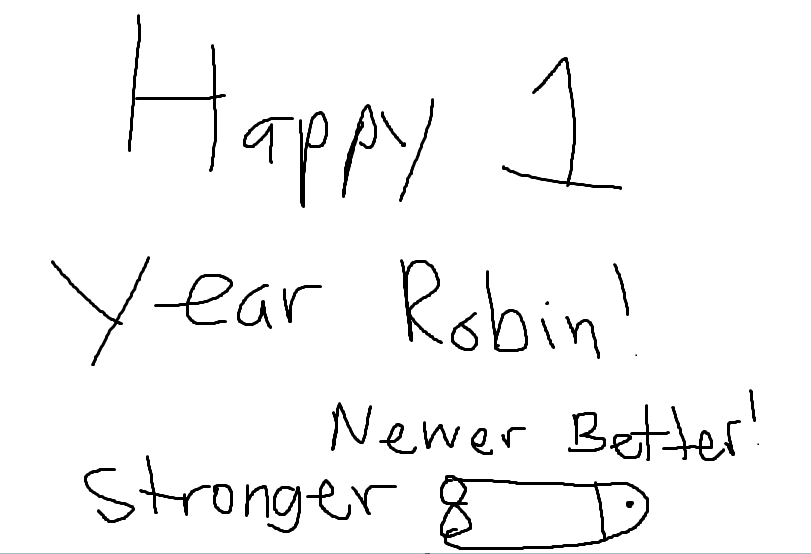 Happy 1
Year Robin!
Newer Better!
Stronger